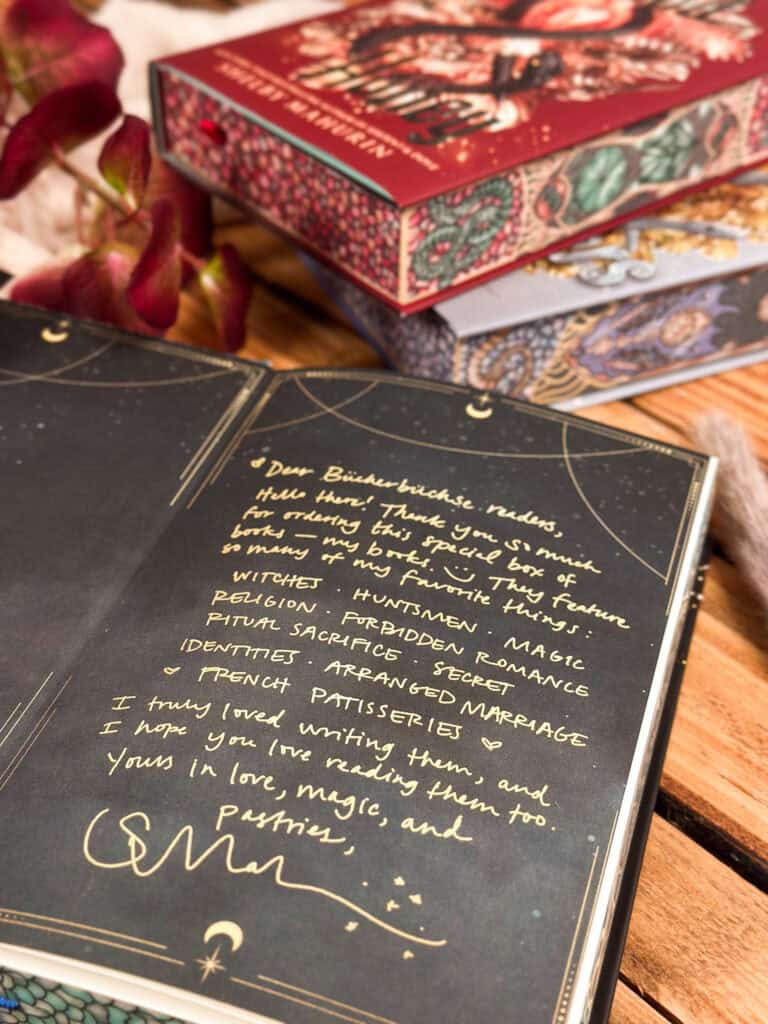 Honey
SHELBY MAHURIN
Dear Bücherbüchse readers,
Hello there! Thank you so much
for ordering this special box of
books — my books. :) They feature
so many of my favorite things:
WITCHES · HUNTSMEN · MAGIC
RELIGION · FORBIDDEN ROMANCE
RITUAL SACRIFICE · SECRET
IDENTITIES · ARRANGED MARRIAGE
♥ FRENCH PATISSERIES ♥
I truly loved writing them, and
I hope you love reading them too.
Yours in love, magic, and
pastries,